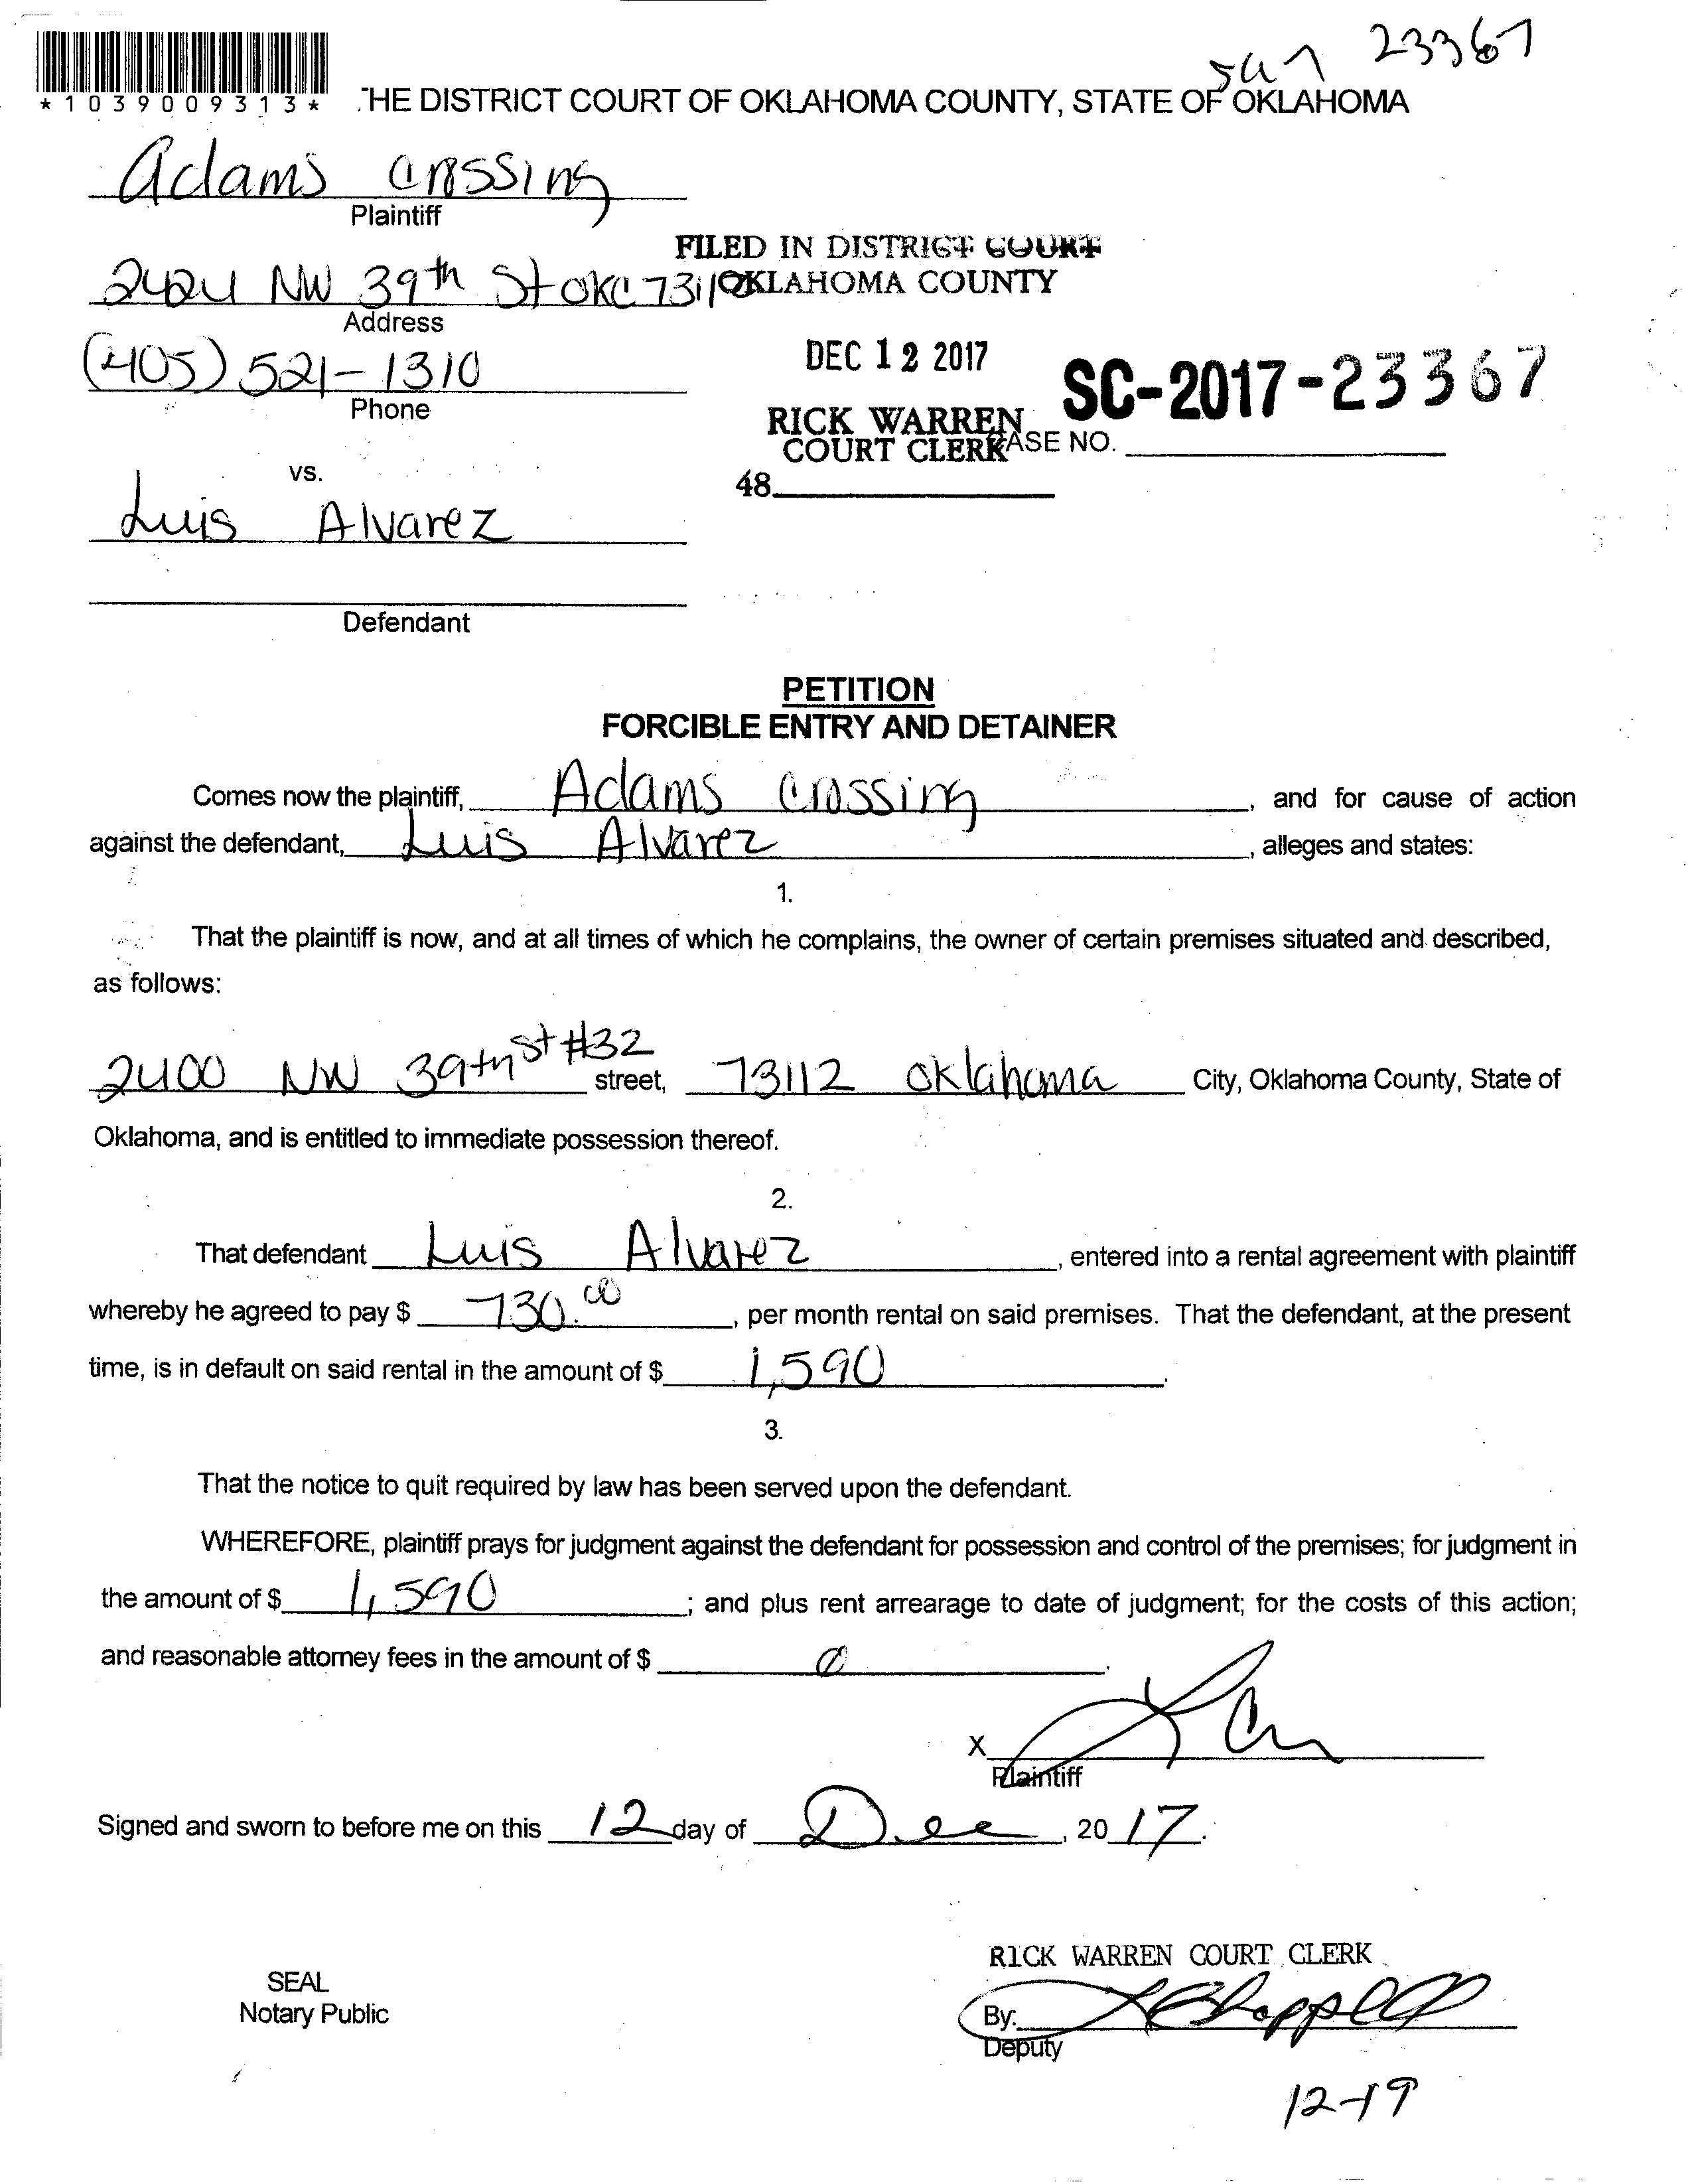 23367
*1039009313* THE DISTRICT COURT OF OKLAHOMA COUNTY, STATE OF OKLAHOMA
Adams Crossing
Plaintiff
FILED IN DISTRICT COURT
OKLAHOMA COUNTY
2424 NW 39th St OKC 7311
Address
(405) 521-1310
Phone
DEC 12 2017
SC-2017-23367
RICK WARREN
COURT CLERK
CASE NO.
48
vs.
Luis Alvarez
Defendant
PETITION
FORCIBLE ENTRY AND DETAINER
Comes now the plaintiff, Adams Crossing, and for cause of action
against the defendant, Luis Alvarez, alleges and states:
1.
That the plaintiff is now, and at all times of which he complains, the owner of certain premises situated and described,
as follows:
2400 NW 39th St #32 street, 73112 Oklahoma City, Oklahoma County, State of
Oklahoma, and is entitled to immediate possession thereof.
2.
That defendant Luis Alvarez, entered into a rental agreement with plaintiff
whereby he agreed to pay $ 730.00, per month rental on said premises. That the defendant, at the present
time, is in default on said rental in the amount of $ 1,590.
3.
That the notice to quit required by law has been served upon the defendant.
WHEREFORE, plaintiff prays for judgment against the defendant for possession and control of the premises; for judgment in
the amount of $ 1,590; and plus rent arrearage to date of judgment; for the costs of this action;
and reasonable attorney fees in the amount of $ 0.
X
Plaintiff
Signed and sworn to before me on this 12 day of Dec, 2017.
RICK WARREN COURT CLERK
SEAL
Notary Public
By:
Deputy
12-19